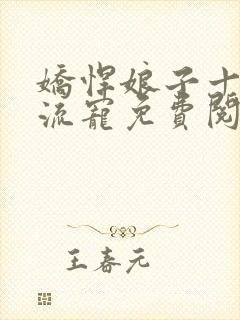 嬌悍娘子十
流寵免費閱
王春元